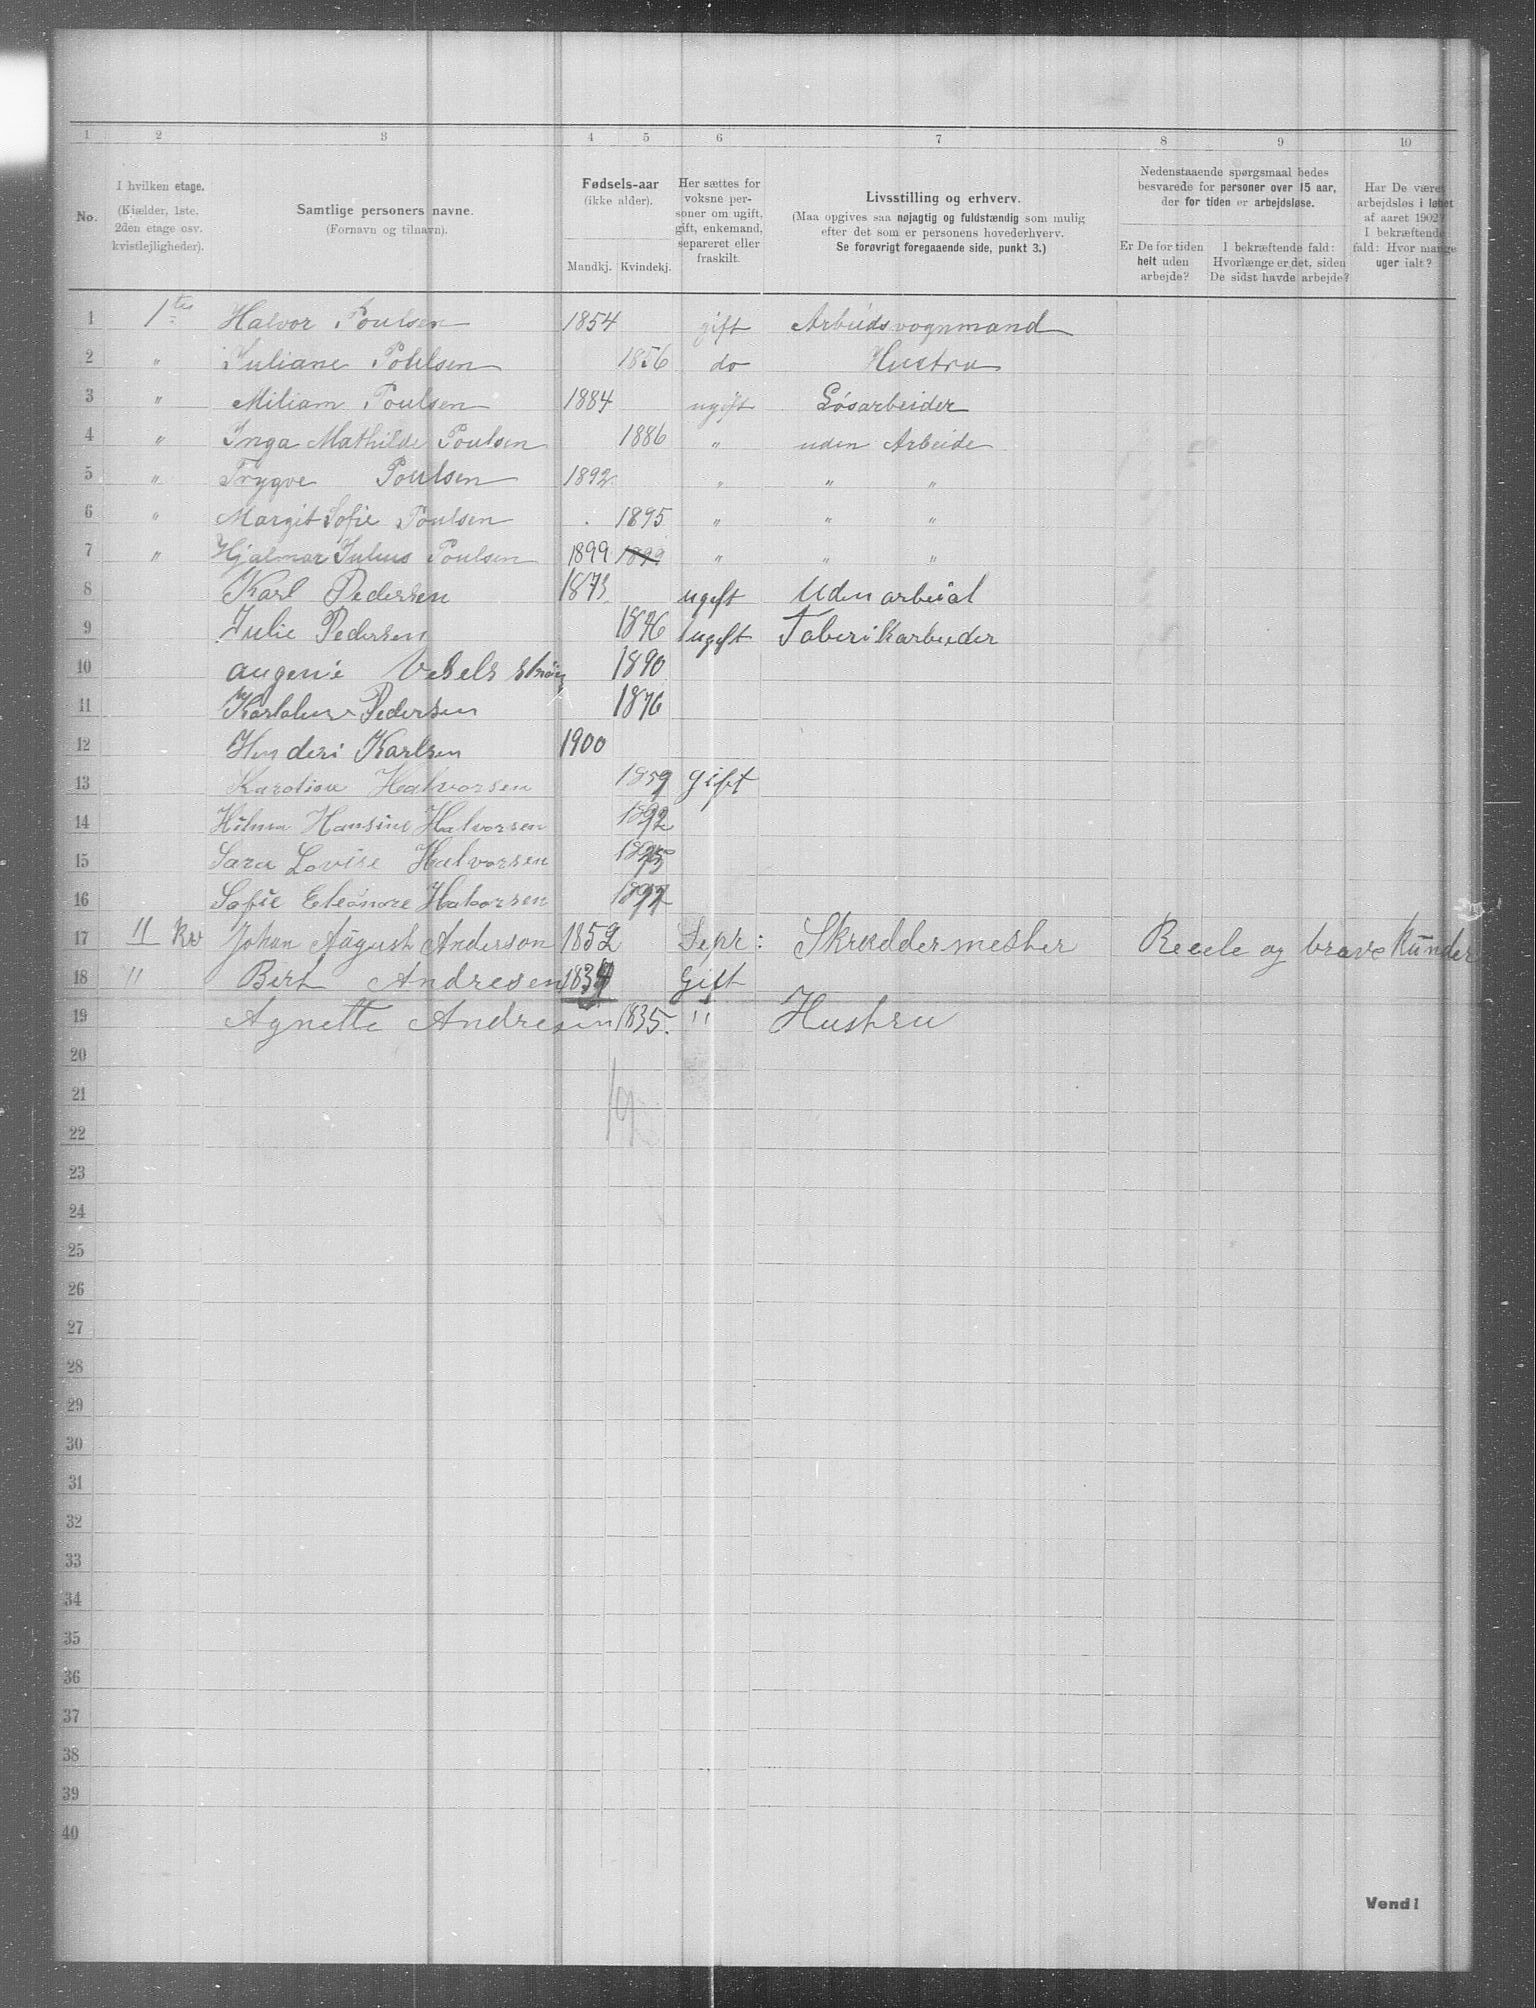 1 2 3 4 5 6 7 8 9 10
No.
I hvilken etage.
(Kjælder, 1ste, 2den etage osv. kvistlejligheder).
Samtlige personers navne.
(Fornavn og tilnavn).
Fødsels-aar
(ikke alder).
Mandkj. Kvindekj.
Her sættes for voksne personer om ugift, gift, enkemand, separeret eller fraskilt.
Livsstilling og erhverv.
(Maa opgives saa nøjagtig og fuldstændig som mulig
efter det som er personens hovederhverv.
Se forøvrigt foregaaende side, punkt 3.)
Nedenstaaende spørgsmaal bedes
besvarede for personer over 15 aar,
der for tiden er arbejdsløse.
Er De for tiden helt uden arbejde?
I bekræftende fald: Hvorlænge er det, siden De sidst havde arbejde?
Har De været arbejdsløs i løbet af aaret 1902? I bekræftende fald: Hvor mange uger ialt?
1 1ste Halvor Poulsen 1854 gift Arbeidsvognmand
2 " Juliane Poulsen 1856 do Hustru
3 " Miliam Poulsen 1884 ugift Løsarbeider
4 " Inga Mathilde Poulsen 1886 " uden Arbeide
5 " Trygve Poulsen 1892 " " "
6 " Margit Sofie Poulsen 1895 " " "
7 " Hjalmar Julius Poulsen 1899 1899 " " "
8 Karl Pedersen 1873 ugift Uden arbeid
9 Julie Pedersen ugift Faberikarbeider
10 augenie 1890
11 Pedersen 1876
12 Karlsen 1900
13 Halvorsen 1859 gift
14 Hilma Hansine Halvorsen 1892
15 Sara Lovise Halvorsen 1895
16 Sofie Eleonore Halvorsen 1897
17 II Kv Johan August Anderson 1852 Sepr: Skræddermester Reele og brave Kunder
18 " Bert Andresen Gift
19 Agnette Andresen 1835. " Hustru
20
21
22
23
24
25
26
27
28
29
30
31
32
33
34
35
36
37
38
39
40
Vend!